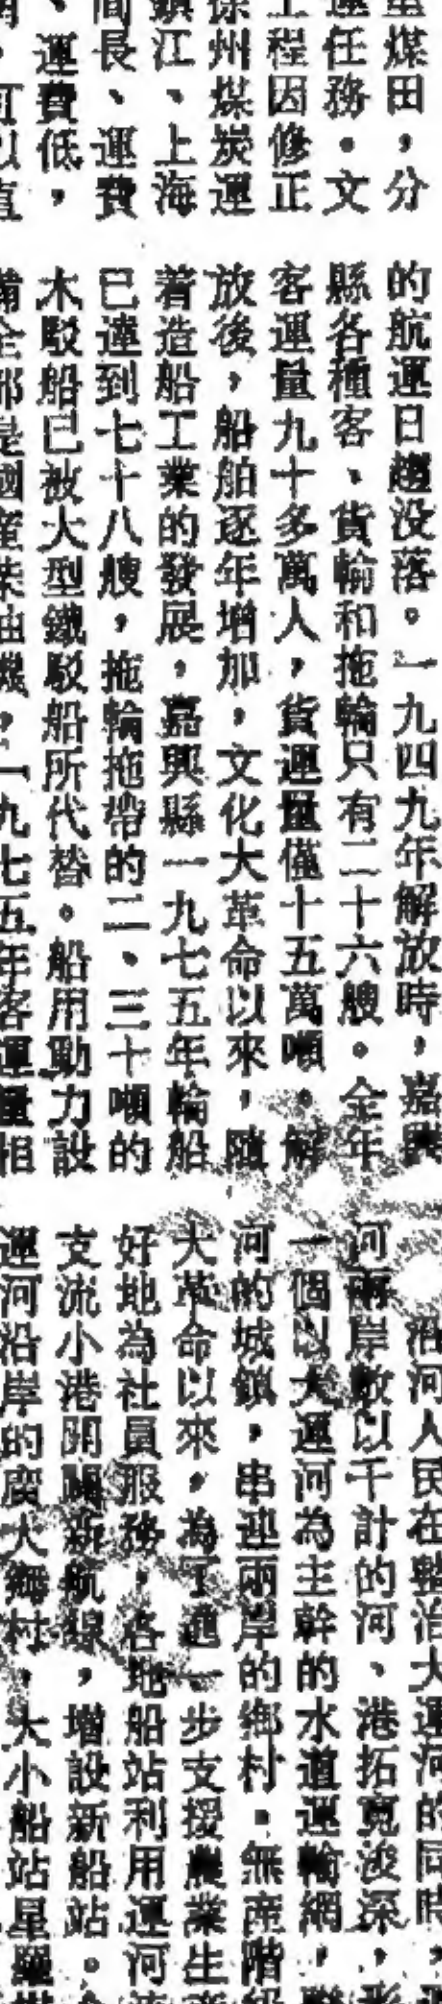 煤田，分
運任務。文
工程因修正
徐州煤炭運
鎮江、上海
間長、運費
、運費低，
可以直
的航運日趨没落。一九四九年解放時，嘉興
縣各種客、貨輪和拖輪只有二十六艘。全年
客運量九十多萬人，貨運量僅十五萬噸。解
放後，船舶逐年增加，文化大革命以來，隨
着造船工業的發展，嘉興縣一九七五年輪船
已達到七十八艘，拖輪拖帶的二、三十噸的
木駁船已被大型鐵駁船所代替。船用動力設
備全部是國産柴油機，一九七五年客運量相
沿河人民在整治大運河的同時，
河兩岸數以千計的河、港拓寬浚深，形
一個以大運河為主幹的水道運輸網，聯
河的城鎮，串迎兩岸的鄉村。無産階級
大革命以來，為了進一步支援農業生產
好地為社員服務，各地船站利用運河
支流小港開闢新航線，增設新船站。
運河沿岸的廣大鄉村，大小船站星羅棋